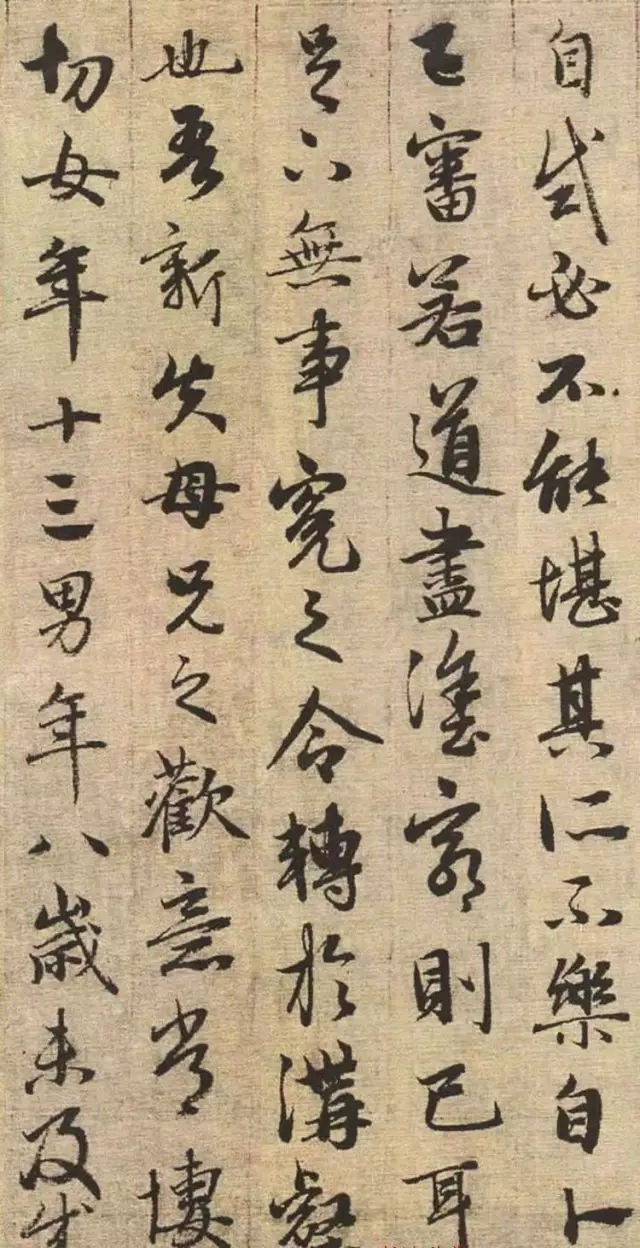 自試必不能堪其所不樂自卜
已審若道盡塗窮則已耳
足下無事冤之令轉於溝壑
也吾新失母兄之歡意常悽
切女年十三男年八歲未及成